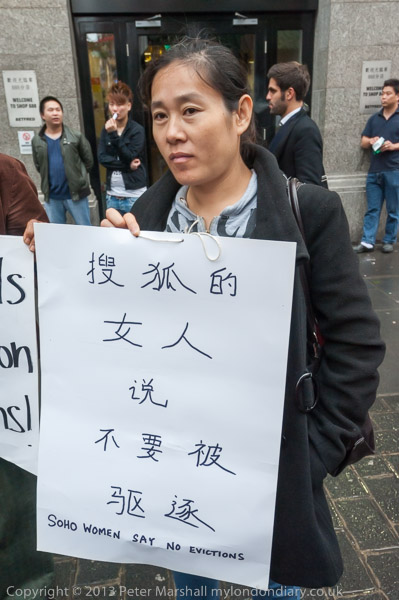 欢迎商区惠
WELCOME
TO SHOP 88B
BETFRED
搜狐的
女人
说
不要被
驱逐
SOHO WOMEN SAY NO EVICTIONS
ls
on
ns!
Copyright © 2013 Peter Marshall mylondondiary.co.uk